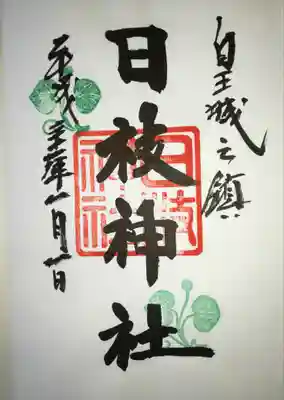 皇城之鎮
日枝神社
日枝神社
平成三十年一月一日